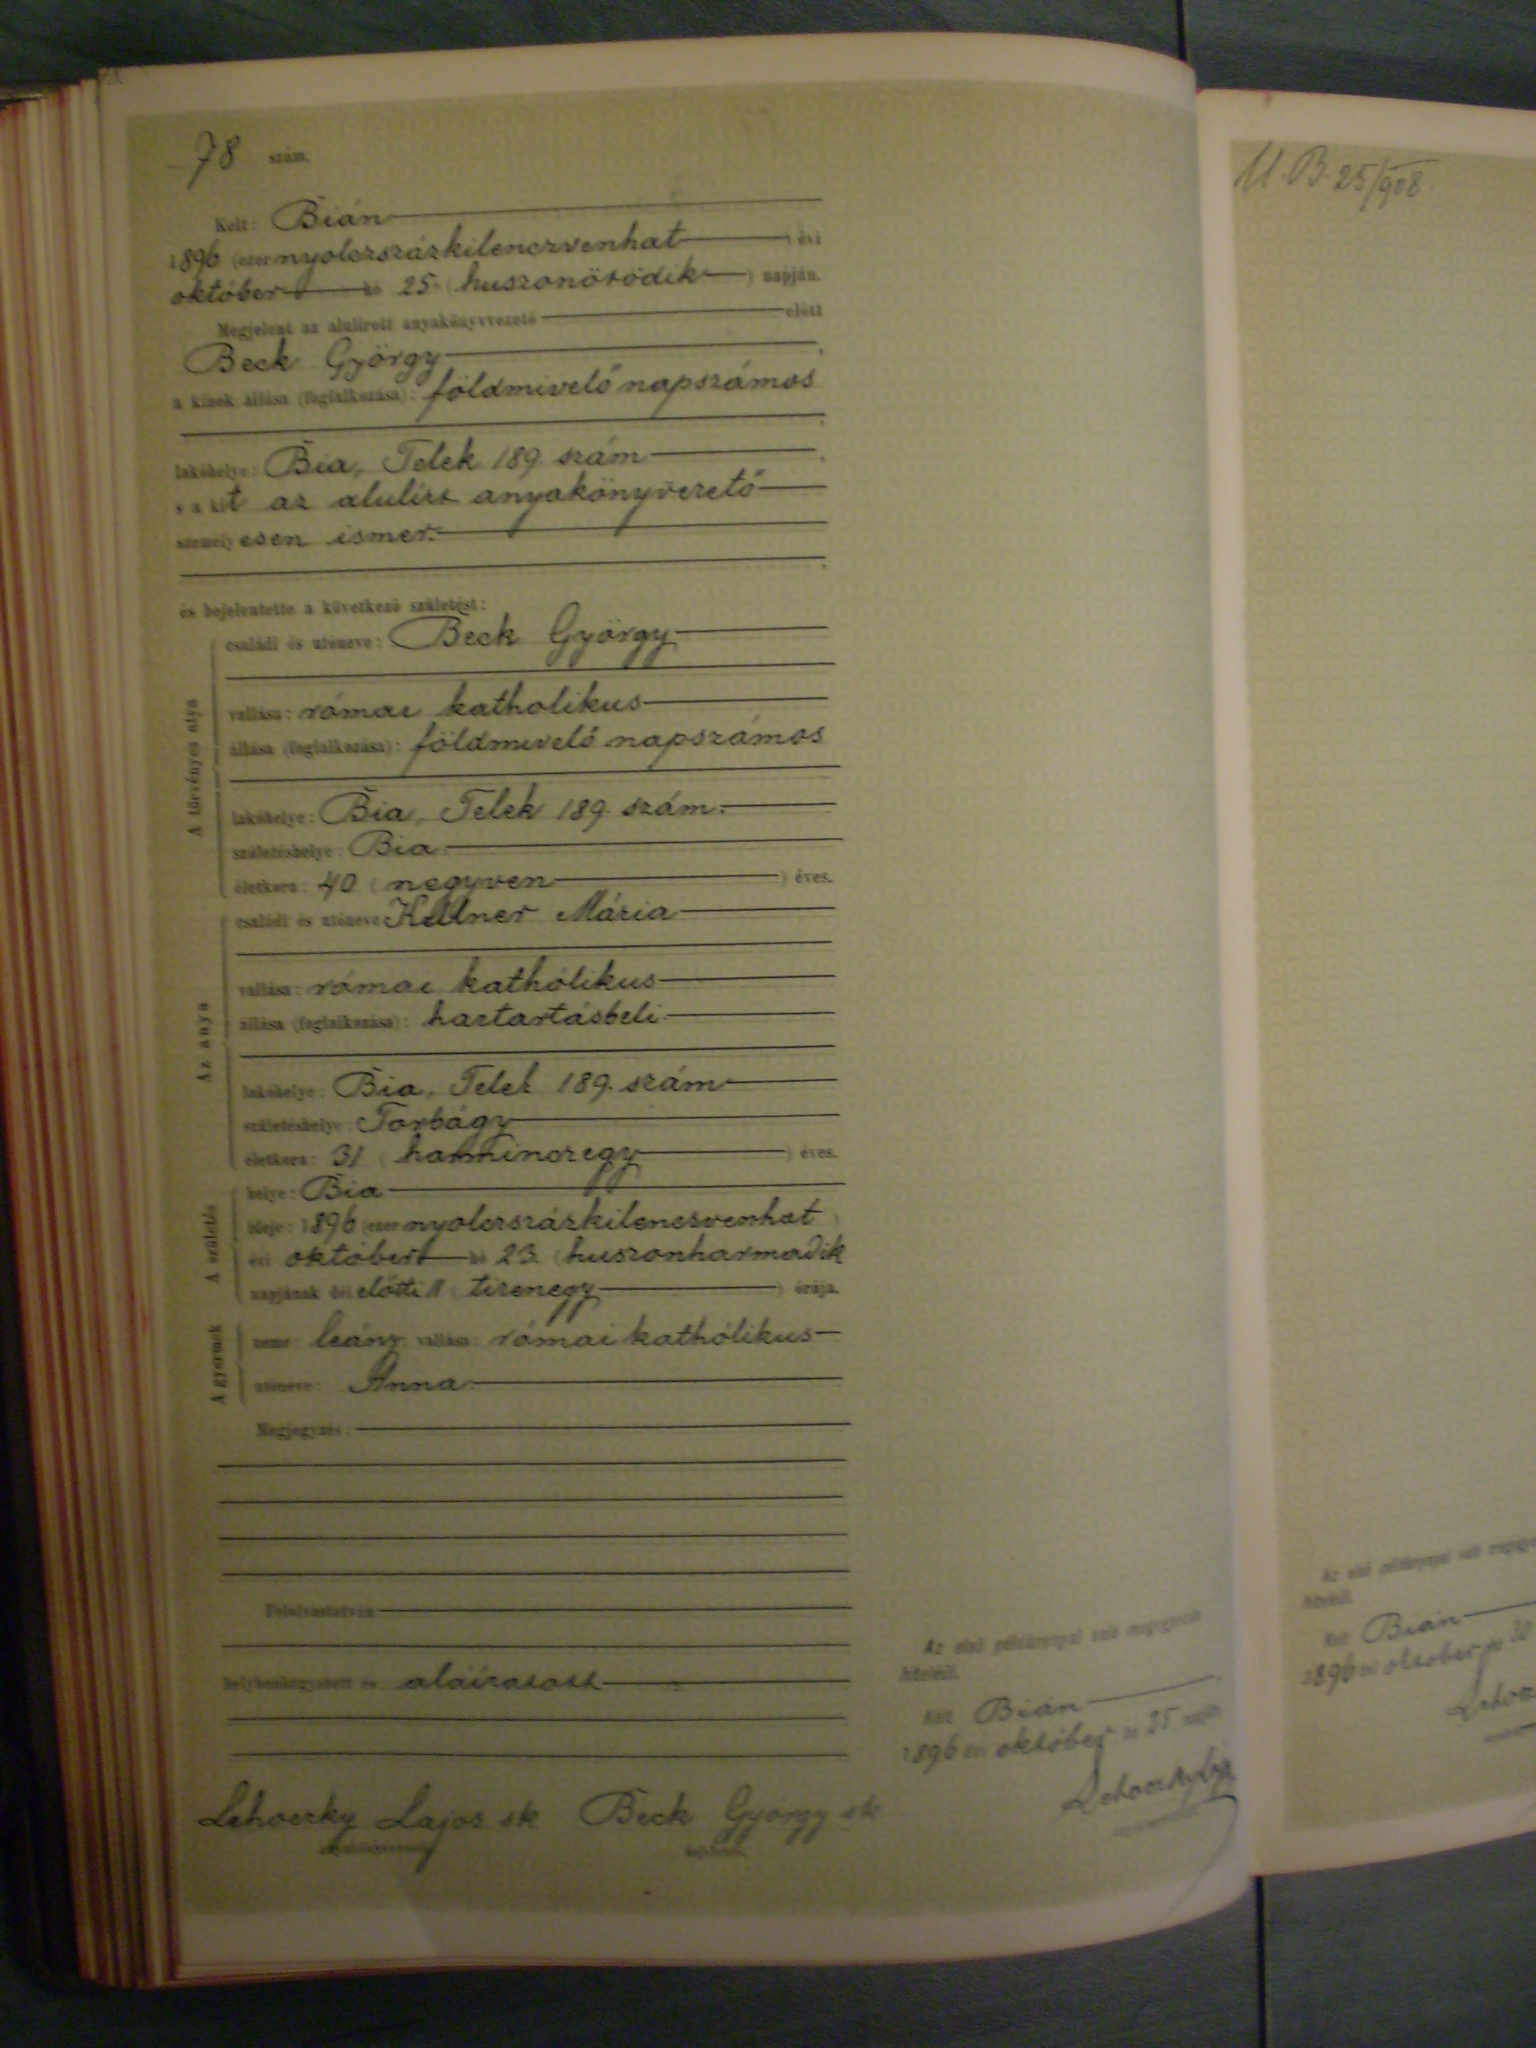 78 szám.
Kelt: Bián
1896 (ezer nyolczszázkilenczvenhat) évi
október hó 25 (huszonötödik) napján.
Megjelent az alulirott anyakönyvvezető előtt
Beck György,
a kinek állása (foglalkozása): földmivelő napszámos
lakóhelye: Bia, Telek 189 szám,
s a kit az alulírt anyakönyvvezető
személyesen ismer.
és bejelentette a következő születést:
A törvényes atya
családi és utóneve: Beck György
vallása: római katholikus
állása (foglalkozása): földmivelő napszámos
lakóhelye: Bia, Telek 189. szám.
születéshelye: Bia
életkora: 40 (negyven) éves.
Az anya
családi és utóneve Kellner Mária
vallása: római kathólikus
állása (foglalkozása): háztartásbeli
lakóhelye: Bia, Telek 189. szám
születéshelye: Torbágy
életkora: 31 (harminczegy) éves.
A születés
helye: Bia
ideje: 1896 (ezer nyolczszázkilenczvenhat)
évi október hó 23. (huszonharmadik
napjának dél előtti 11 (tizenegy) órája.
A gyermek
neme: leány, vallása: római kathólikus
utóneve: Anna
Megjegyzés:
Felolvastatván
helybenhagyatott és aláíratott
Lehoczky Lajos sk Beck György sk
anyakönyvvezető bejelentő.
Az első példánynyal való megegyezés
hiteléül.
Kelt Bián
1896 évi október hó 25. napján
Lehoczky Lajos
M. B. 25/908.
Az első példánynyal való
hiteléül.
Kelt Bián
1896 évi október hó 30